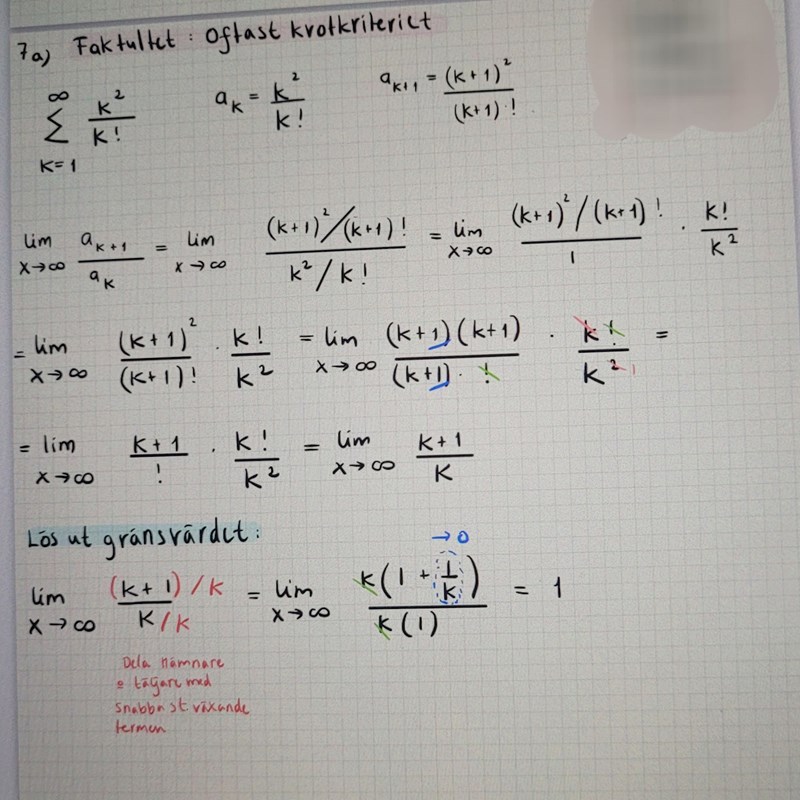 7a) Faktultet : Oftast kvotkriteriet
∞ ∑ k=1 k²/k!    a_k = k²/k!    a_{k+1} = (k+1)²/(k+1)·!
lim x→∞ a_{k+1}/a_k = lim x→∞ ((k+1)²/(k+1)!)/(k²/k!) = lim x→∞ ((k+1)²/(k+1)!)/1 · k!/k²
= lim x→∞ (k+1)²/(k+1)! · k!/k² = lim x→∞ (k+1)(k+1)/(k+1)·! · k!/k² =
= lim x→∞ k+1/! · k!/k² = lim x→∞ k+1/k
Lös ut gränsvärdet:
→0
lim x→∞ (k+1)/k / k/k = lim x→∞ k(1 + 1/k)/k(1) = 1
Dela nämnare
o täljare med
snabbast växande
termen